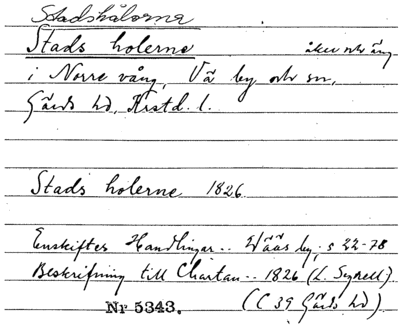 Stadshålorna
Stads holerne åker och äng
i Norre vång, Vä by och sn,
Gärds hd, Krstd. l.
Stads holerne 1826
Enskiftes Handlingar.. Wääs by, s 22-78
Beskrifning till Chartan.. 1826 (L. Segrell)
Nr 5343. (C 39 Gärds hd)